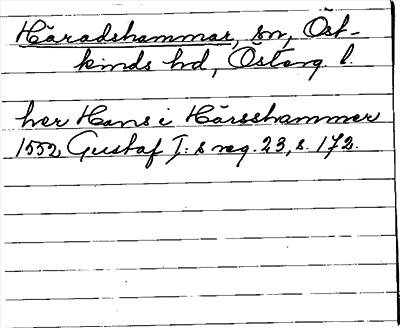 Häradshammar, sn, Öst-
kinds hd, Östang. l.
her Hans i Härsshammer
1552 Gustaf I:s reg. 23, s. 172.